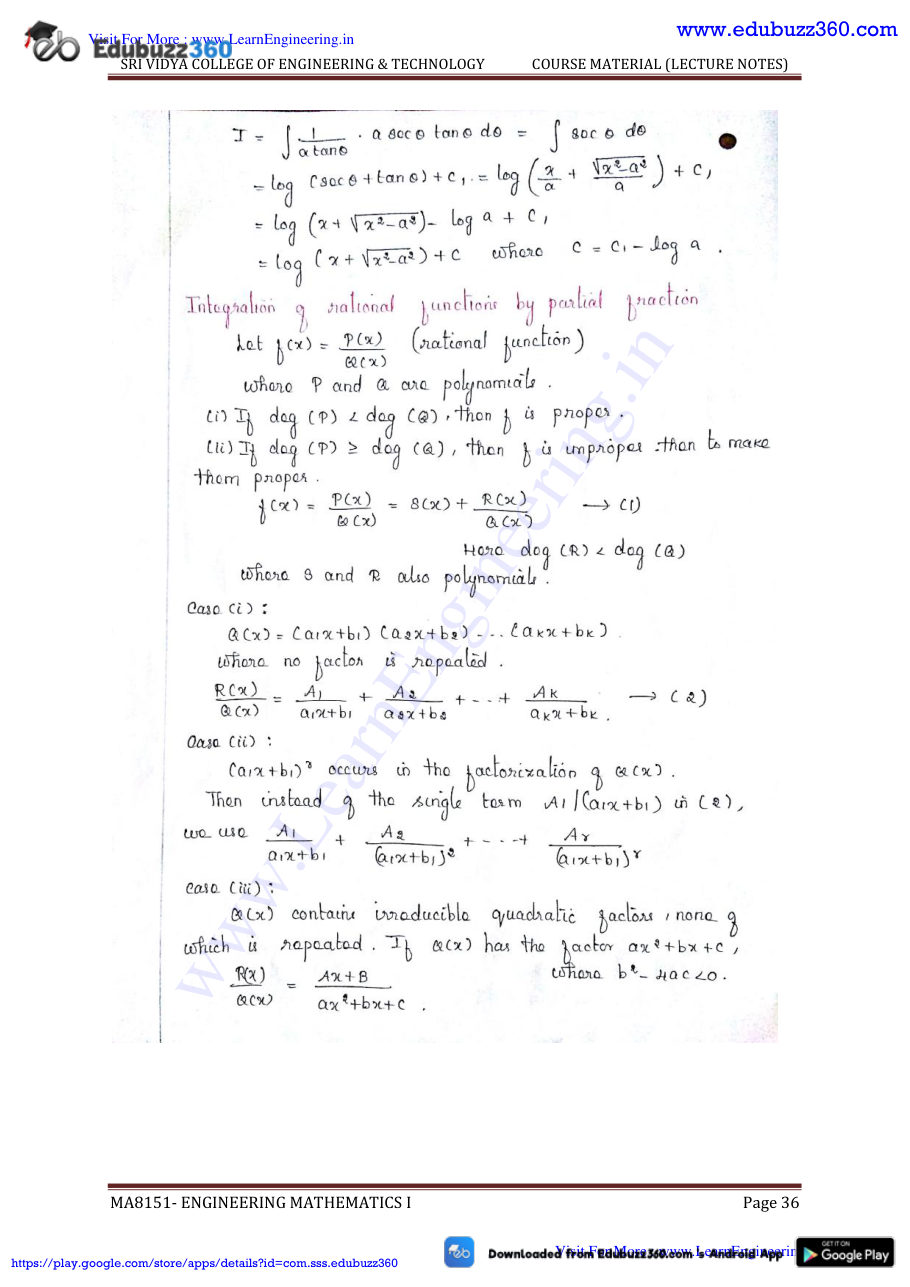 Visit For More : www.LearnEngineering.in
www.edubuzz360.com
Edubuzz360
SRI VIDYA COLLEGE OF ENGINEERING & TECHNOLOGY COURSE MATERIAL (LECTURE NOTES)
I = ∫ 1/(a tanθ) · a secθ tanθ dθ = ∫ sec θ dθ
= log (secθ + tanθ) + c₁ = log (x/a + √(x²-a²)/a) + c₁
= log (x + √(x²-a²)) - log a + c₁
= log (x + √(x²-a²)) + c where c = c₁ - log a .
Integration of rational functions by partial fraction
Let f(x) = P(x)/Q(x) (rational function)
where P and Q are polynomials .
(i) If deg (P) < deg (Q), then f is proper .
(ii) If deg (P) ≥ deg (Q), then f is improper then to make
them proper .
f(x) = P(x)/Q(x) = S(x) + R(x)/Q(x) → (1)
Here deg (R) < deg (Q)
where S and R also polynomials .
Case (i) :
Q(x) = (a₁x+b₁) (a₂x+b₂) - . . (aₖx+bₖ)
where no factor is repeated .
R(x)/Q(x) = A₁/(a₁x+b₁) + A₂/(a₂x+b₂) + - . . + Aₖ/(aₖx+bₖ) . → (2)
Case (ii) :
(a₁x+b₁)ʳ occurs in the factorization of Q(x) .
Then instead of the single term A₁/(a₁x+b₁) in (2),
we use A₁/(a₁x+b₁) + A₂/(a₁x+b₁)² + - - - + Aᵣ/(a₁x+b₁)ʳ
Case (iii) :
Q(x) contains irreducible quadratic factors, none of
which is repeated . If Q(x) has the factor ax²+bx+c ,
where b²-4ac<0 .
R(x)/Q(x) = (Ax+B)/(ax²+bx+c) .
www.LearnEngineering.in
MA8151- ENGINEERING MATHEMATICS I Page 36
Downloaded from Edubuzz360.com 's Android App
Visit For More : www.LearnEngineerin
GET IT ON
Google Play
https://play.google.com/store/apps/details?id=com.sss.edubuzz360